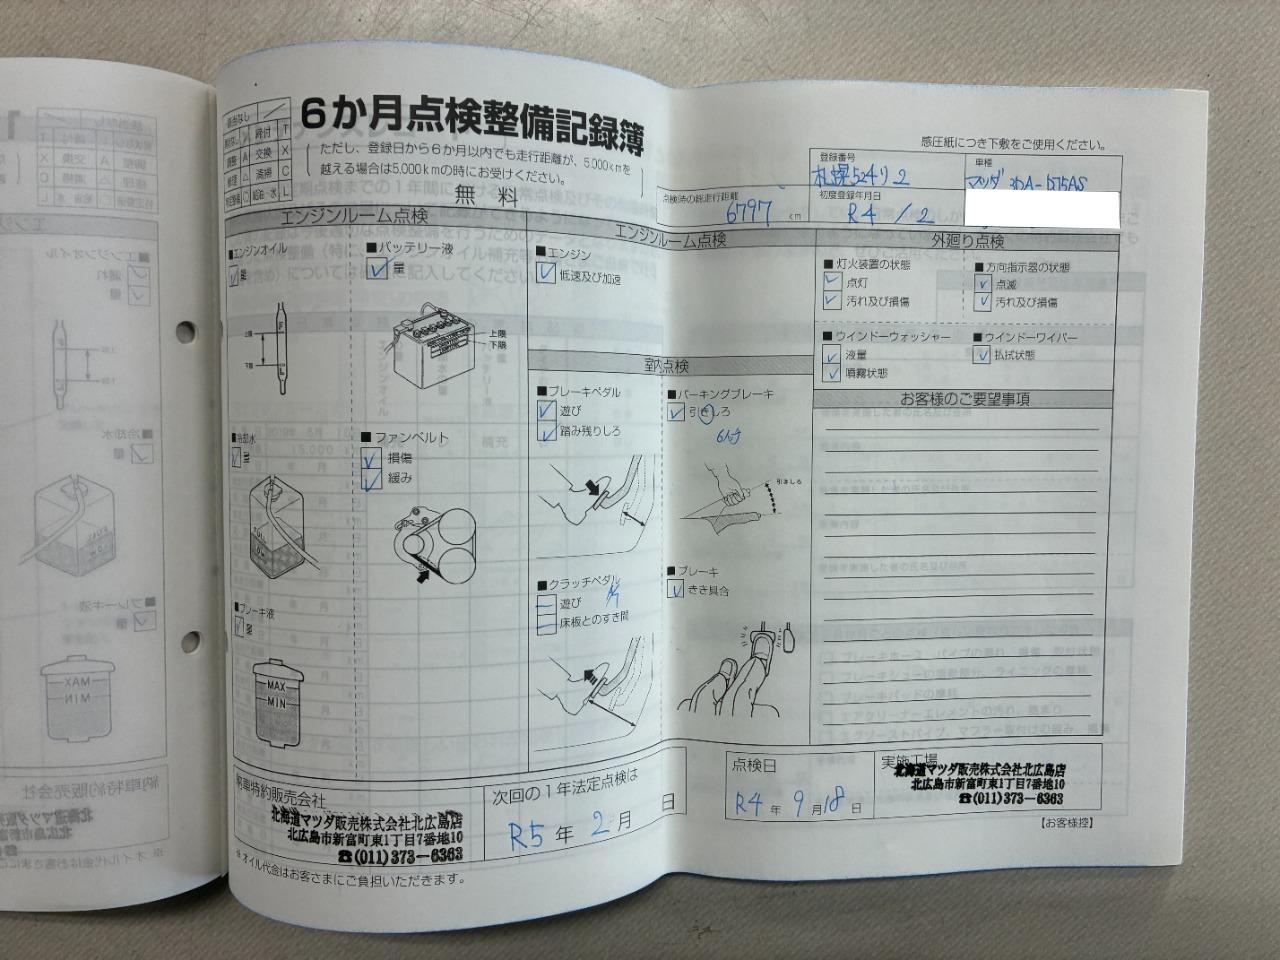 6か月点検整備記録簿
ただし、登録日から6か月以内でも走行距離が、5,000kmを
越える場合は5,000kmの時にお受けください。
無料
締付 T
交換 X
清掃 C
給油・水 L
感圧紙につき下敷をご使用ください。
登録番号
車種
点検時の総走行距離
6797 km
初度登録年月日
R4 / 2
エンジンルーム点検
エンジンルーム点検
外廻り点検
■エンジンオイル
量
■バッテリー液
量
■エンジン
低速及び加速
上限
下限
上限
下限
■冷却水
量
■ファンベルト
損傷
緩み
FULL
LOW
■ブレーキ液
量
MAX
MIN
室内点検
■ブレーキペダル
遊び
踏み残りしろ
■パーキングブレーキ
引きしろ
引きしろ
■クラッチペダル
遊び
床板とのすき間
■ブレーキ
きき具合
■灯火装置の状態
点灯
汚れ及び損傷
■方向指示器の状態
点滅
汚れ及び損傷
■ウインドーウォッシャー
液量
噴霧状態
■ウインドーワイパー
払拭状態
お客様のご要望事項
納車特約販売会社
北海道マツダ販売株式会社北広島店
北広島市新富町東1丁目7番地10
☎(011)373-6363
次回の1年法定点検は
R5 年 2 月 日
点検日
R4 年 9 月 18 日
実施工場
北海道マツダ販売株式会社北広島店
北広島市新富町東1丁目7番地10
☎(011)373-6363
【お客様控】
※オイル代金はお客さまにご負担いただきます。